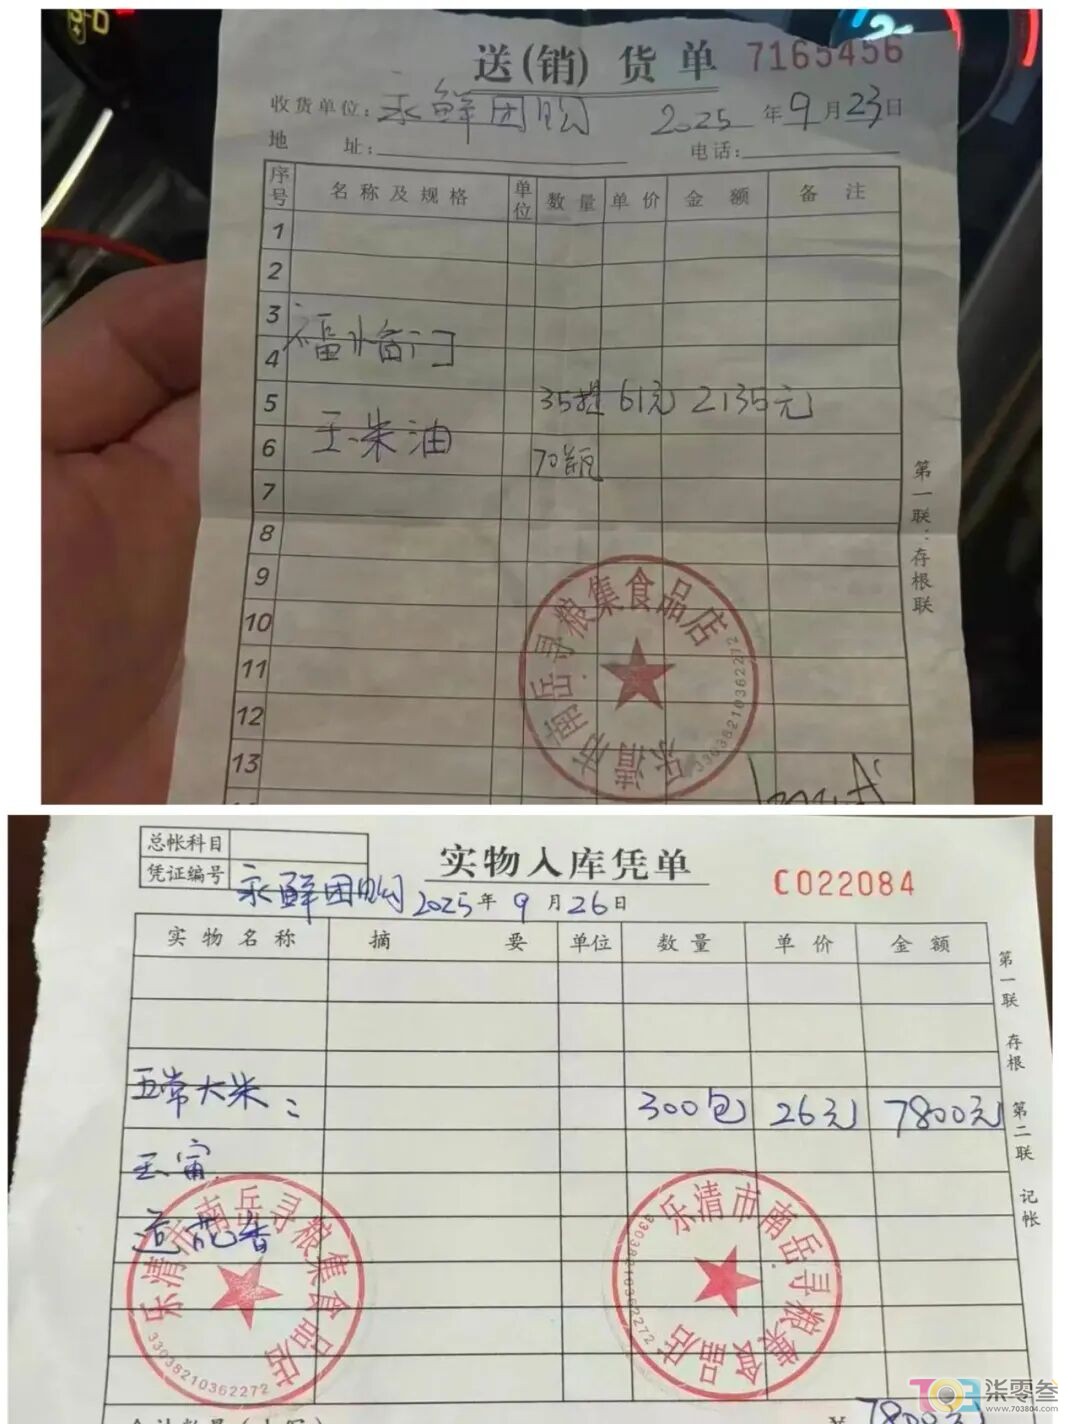 送(销)货单 7165456
收货单位: 永鲜团购 2025年9月23日
地 址: 电话:
序号 名称及规格 单位 数量 单价 金额 备注
1
2
3
福临门
4
5 35提 61元 2135元
玉米油
6 70瓶
7
8
9
10
11
12
13
第一联:存根联
乐清市南岳寻粮集食品店
33038210362272
总帐科目
凭证编号
实物入库凭单 C022084
永鲜团购 2025年9月26日
实物名称 摘要 单位 数量 单价 金额
五常大米: 300包 26元 7800元
花香
第一联 存根 第二联 记帐
乐清市南岳寻粮集食品店
33038210362272
乐清市南岳寻粮集食品店
33038210362272
¥7800元
703 柒零叁
www.703804.com